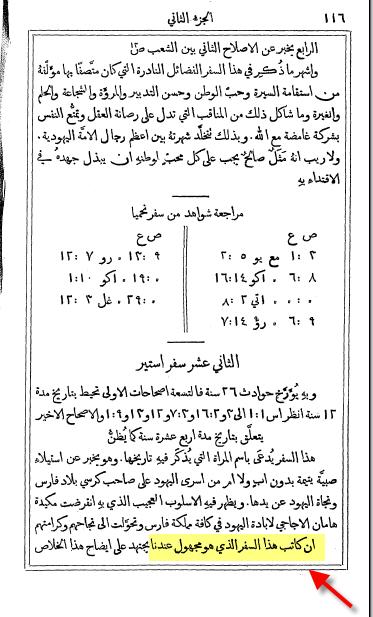 ١١٦ الجزء الثاني
الرابع يخبر عن الاصلاح الثاني بين الشعب ص١٣
واشهر ما ذُكِر في هذا السفر الفضائل النادرة التي كان متصفًا بها مؤلفهُ
من استقامة السيرة وحبّ الوطن وحسن التدبير والمروّة والشجاعة والحلم
والغيرة وما شاكل ذلك من المناقب التي تدل على رصانة العقل وتمتُّع النفس
بشركة غامضة مع الله. وبذلك تتخلَّد شهرتهُ بين اعظم رجال الامَّة اليهودية.
ولا ريب انهُ مَثَلٌ صالحٌ يجب على كل محبٍّ لوطنهِ ان يبذل جهدهُ في
الاقتداء بهِ
مراجعة شواهد من سفر نحميا
ص ع ص ع
٢ : ١ مع يو ٥ : ٢ ٩ : ١٣ . رو ٧ : ١٢
٨ : ٦ . ١كو ١٤ : ١٦ ٠ : ١٩ . ١كو ١٠ : ١
٠ : ٠ . ١تي ٢ : ٨ ٠ : ٢٩ . غل ٣ : ١٢
٩ : ٦ . رؤ ١٤ : ٧
الثاني عشر سفر استير
وبهِ يُوَرَّخ حوادث ٢٦ سنة فالتسعة اصحاحات الاولى تحيط بتاريخ مدة
١٢ سنة انظر اس ١ : ١ الى ٣ و ٢ : ١٦ و ٣ : ٧ و ١٢ و ١٣ و ٩ : ١ والاصحاح الاخير
يتعلَّق بتاريخ مدة اربع عشرة سنة كما يُظَنُّ
هذا السفر يُدعَى باسم المراة التي يُذكَر فيهِ تاريخها. وهو يخبر عن استيلاء
صبيَّة يتيمة بدون اسم ولا امر من اسرى اليهود على صاحب كرسي بلاد فارس
ونجاة اليهود عن يدها. ويظهر فيهِ الاسلوب العجيب الذي بهِ انقرضت مكيدة
هامان الاجاجي لابادة اليهود في كافة مملكة فارس وتحوَّلت الى نجاحهم وكرامتهم
ان كاتب هذا السفر الذي هو مجهول عندنا يجتهد على ايضاح هذا الخلاص